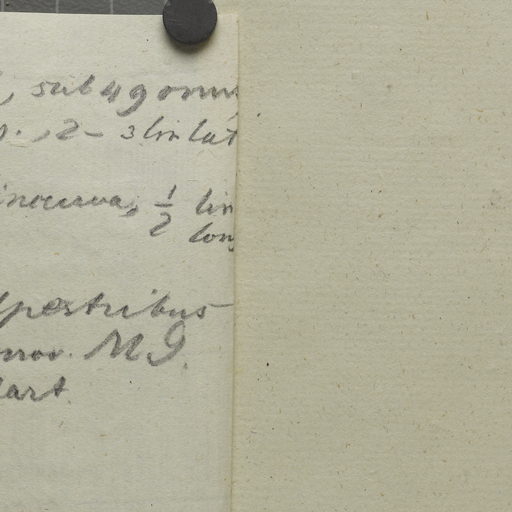 , sub 4gonu
p., 2-3 lin lat
incurva, 1/2 lin
long
lpestribus
nov. M I.
art.